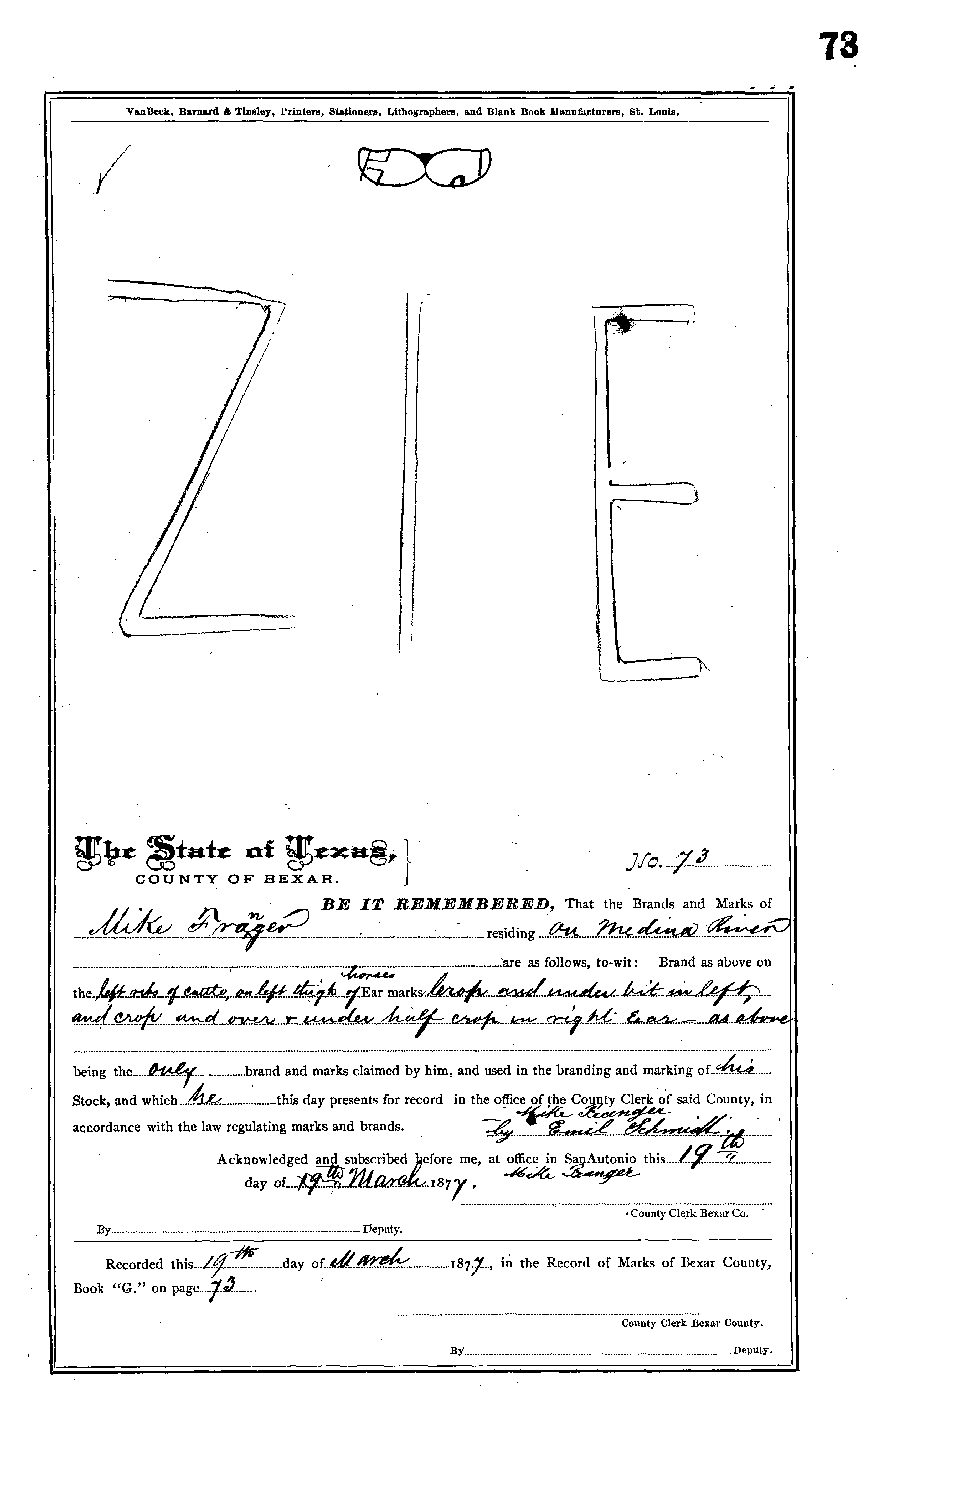 73
VanBeek, Barnard & Tinsley, Printers, Stationers, Lithographers, and Blank Book Manufacturers, St. Louis,
Z I E
The State of Texas,
No. 73
COUNTY OF BEXAR.
BE IT REMEMBERED, That the Brands and Marks of
Mike residing on Medina River
are as follows, to-wit: Brand as above on
horses
the left ribs of cattle, on left thigh of Ear marks Crop and under bit in left,
and crop and over & under half crop in right Ear - as above
being the only brand and marks claimed by him, and used in the branding and marking of his
Stock, and which he this day presents for record in the office of the County Clerk of said County, in
Mike
accordance with the law regulating marks and brands. by Emil Schmidt.
Acknowledged and subscribed before me, at office in SanAntonio this 19th
day of 19th March 1877. Mike
County Clerk Bexar Co.
By Deputy.
Recorded this 19th day of March 1877, in the Record of Marks of Bexar County,
Book "G." on page 73
County Clerk Bexar County.
By Deputy.